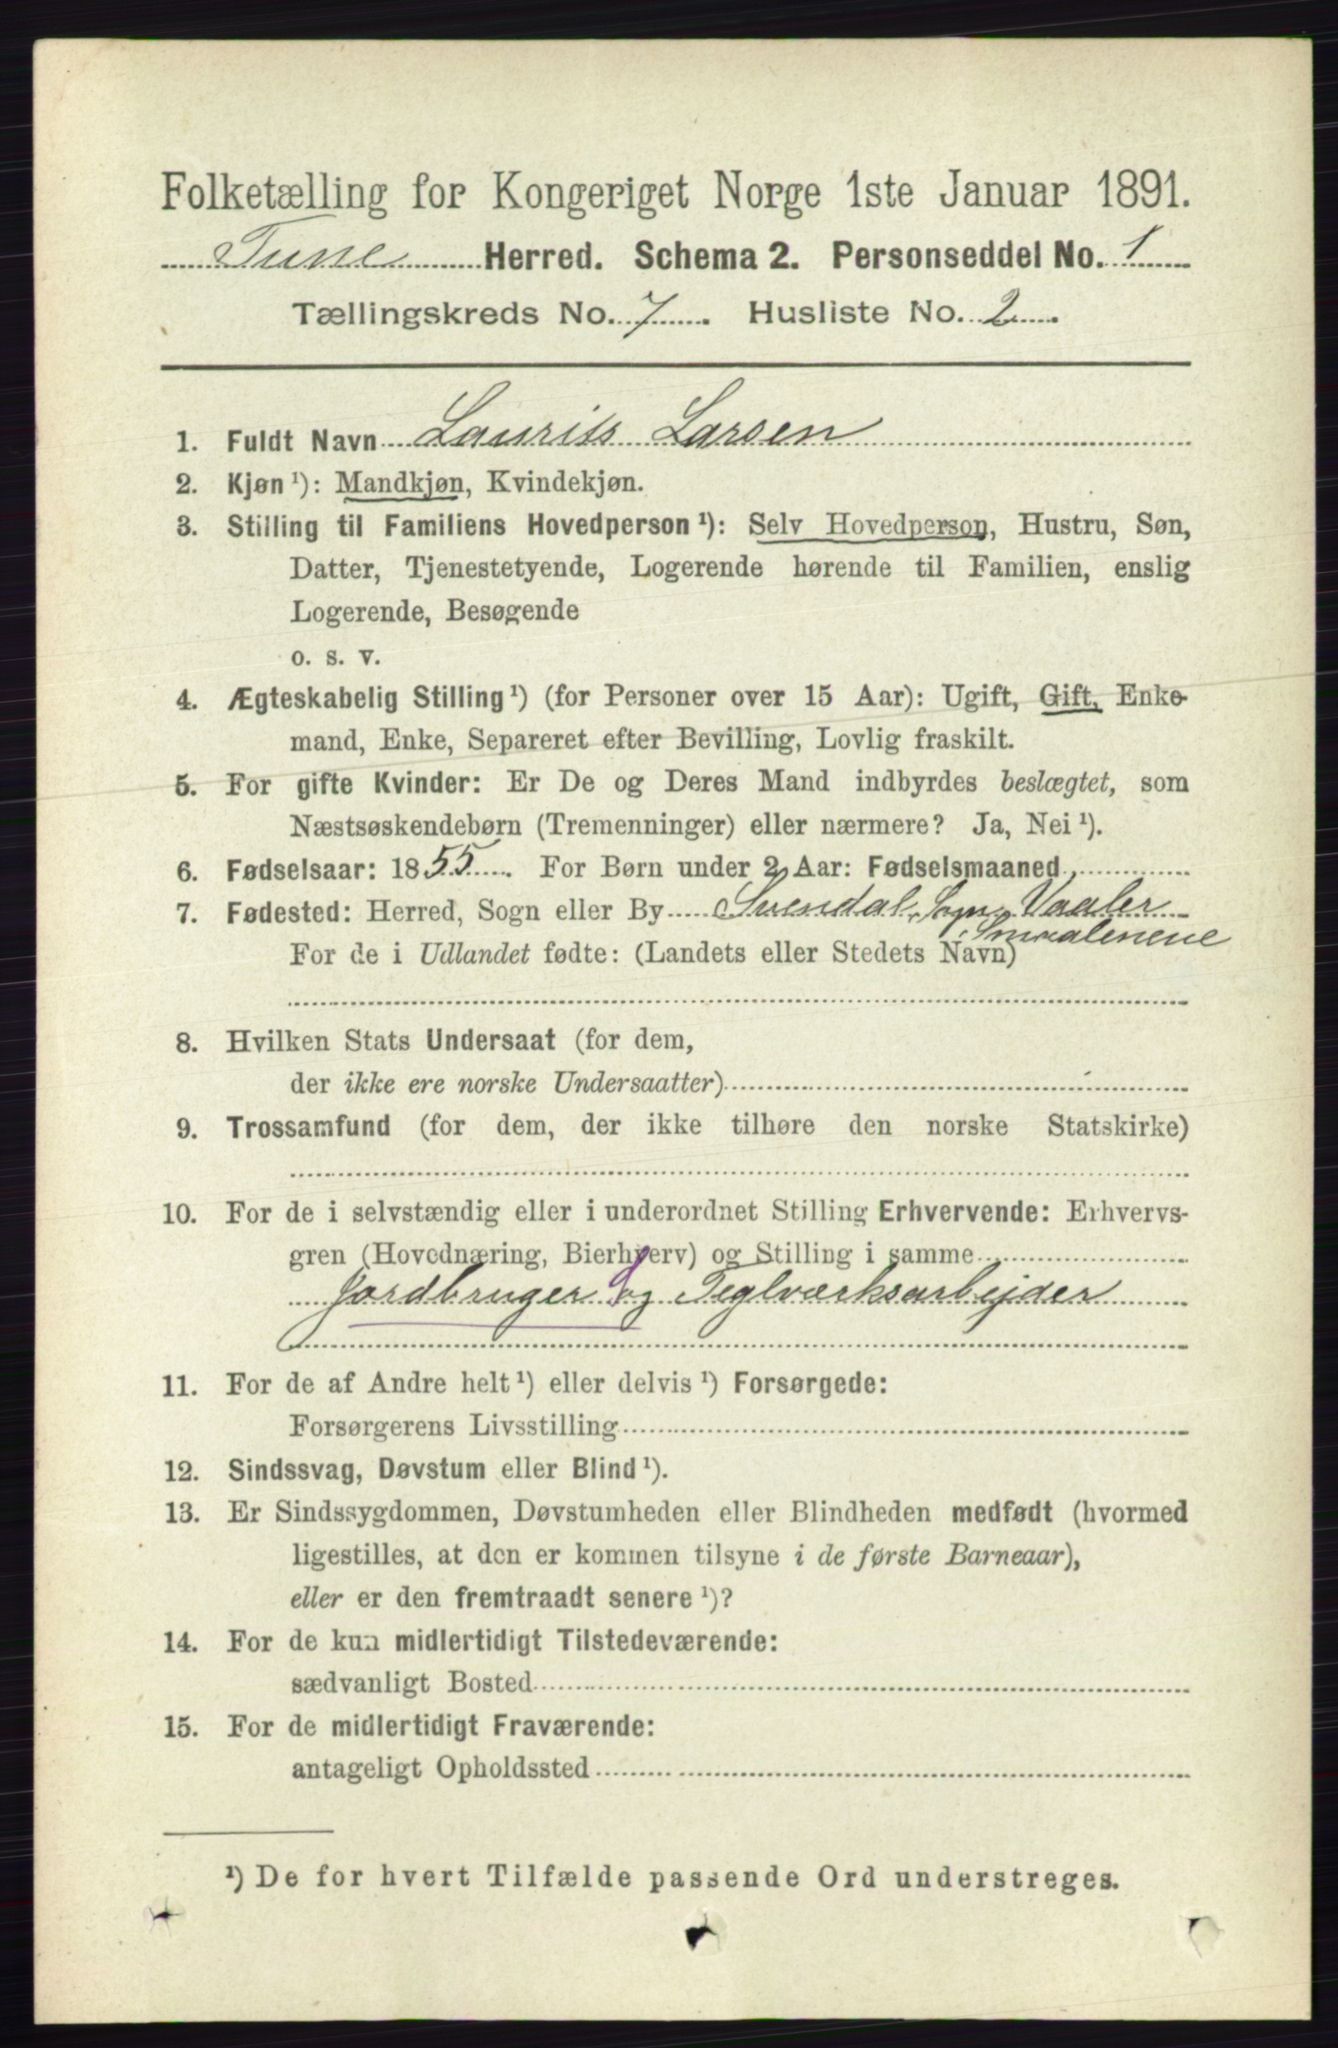 Folketælling for Kongeriget Norge 1ste Januar 1891.
Tune Herred. Schema 2. Personseddel No. 1
Tællingskreds No. 7. Husliste No. 2.
1. Fuldt Navn Laurits Larsen
2. Kjøn ¹): Mandkjøn, Kvindekjøn.
3. Stilling til Familiens Hovedperson ¹): Selv Hovedperson, Hustru, Søn,
Datter, Tjenestetyende, Logerende hørende til Familien, enslig
Logerende, Besøgende
o. s. v.
4. Ægteskabelig Stilling ¹) (for Personer over 15 Aar): Ugift, Gift, Enke-
mand, Enke, Separeret efter Bevilling, Lovlig fraskilt.
5. For gifte Kvinder: Er De og Deres Mand indbyrdes beslægtet, som
Næstsøskendebørn (Tremenninger) eller nærmere? Ja, Nei ¹).
6. Fødselsaar: 1855. For Børn under 2 Aar: Fødselsmaaned
7. Fødested: Herred, Sogn eller By Svendal, Sogn Vaaler
Smaalenene
For de i Udlandet fødte: (Landets eller Stedets Navn)
8. Hvilken Stats Undersaat (for dem,
der ikke ere norske Undersaatter)
9. Trossamfund (for dem, der ikke tilhøre den norske Statskirke)
10. For de i selvstændig eller i underordnet Stilling Erhvervende: Erhvervs-
gren (Hovednæring, Bierhverv) og Stilling i samme
Jordbruger og Teglværksarbejder
11. For de af Andre helt ¹) eller delvis ¹) Forsørgede:
Forsørgerens Livsstilling
12. Sindssvag, Døvstum eller Blind ¹).
13. Er Sindssygdommen, Døvstumheden eller Blindheden medfødt (hvormed
ligestilles, at den er kommen tilsyne i de første Barneaar),
eller er den fremtraadt senere ¹)?
14. For de kun midlertidigt Tilstedeværende:
sædvanligt Bosted
15. For de midlertidigt Fraværende:
antageligt Opholdssted
¹) De for hvert Tilfælde passende Ord understreges.